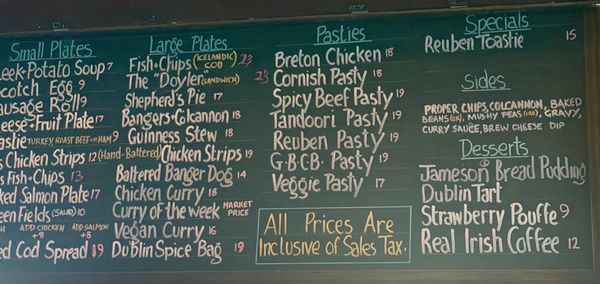 Small Plates
Leek+Potato Soup 7
Scotch Egg 9
Sausage Roll 9
Cheese+Fruit Plate 17
Toastie TURKEY, ROAST BEEF OR HAM 9
Chicken Strips 12 (Hand-Battered)
Fish+Chips 13
Smoked Salmon Plate 17
Green Fields (SALAD) 10
ADD CHICKEN +8 ADD SALMON +8
Cod Spread 19
Large Plates
Fish+Chips (ICELANDIC COD) 23
The "Doyler" (SANDWICH)
Shepherd's Pie 17
Bangers+Colcannon 18
Guinness Stew 18
Chicken Strips 19
Battered Banger Dog 14
Chicken Curry 18
Curry of the Week MARKET PRICE
Vegan Curry 16
Dublin Spice Bag 19
Pasties
Breton Chicken 18
Cornish Pasty 18
Spicy Beef Pasty 19
Tandoori Pasty 19
Reuben Pasty 19
G·B·C·B· Pasty 19
Veggie Pasty 17
All Prices Are
Inclusive of Sales Tax.
Specials
Reuben Toastie 15
Sides
PROPER CHIPS, COLCANNON, BAKED
BEANS, MUSHY PEAS, GRAVY,
CURRY SAUCE, BREW CHEESE DIP
Desserts
Jameson Bread Pudding
Dublin Tart
Strawberry Pouffe 9
Real Irish Coffee 12